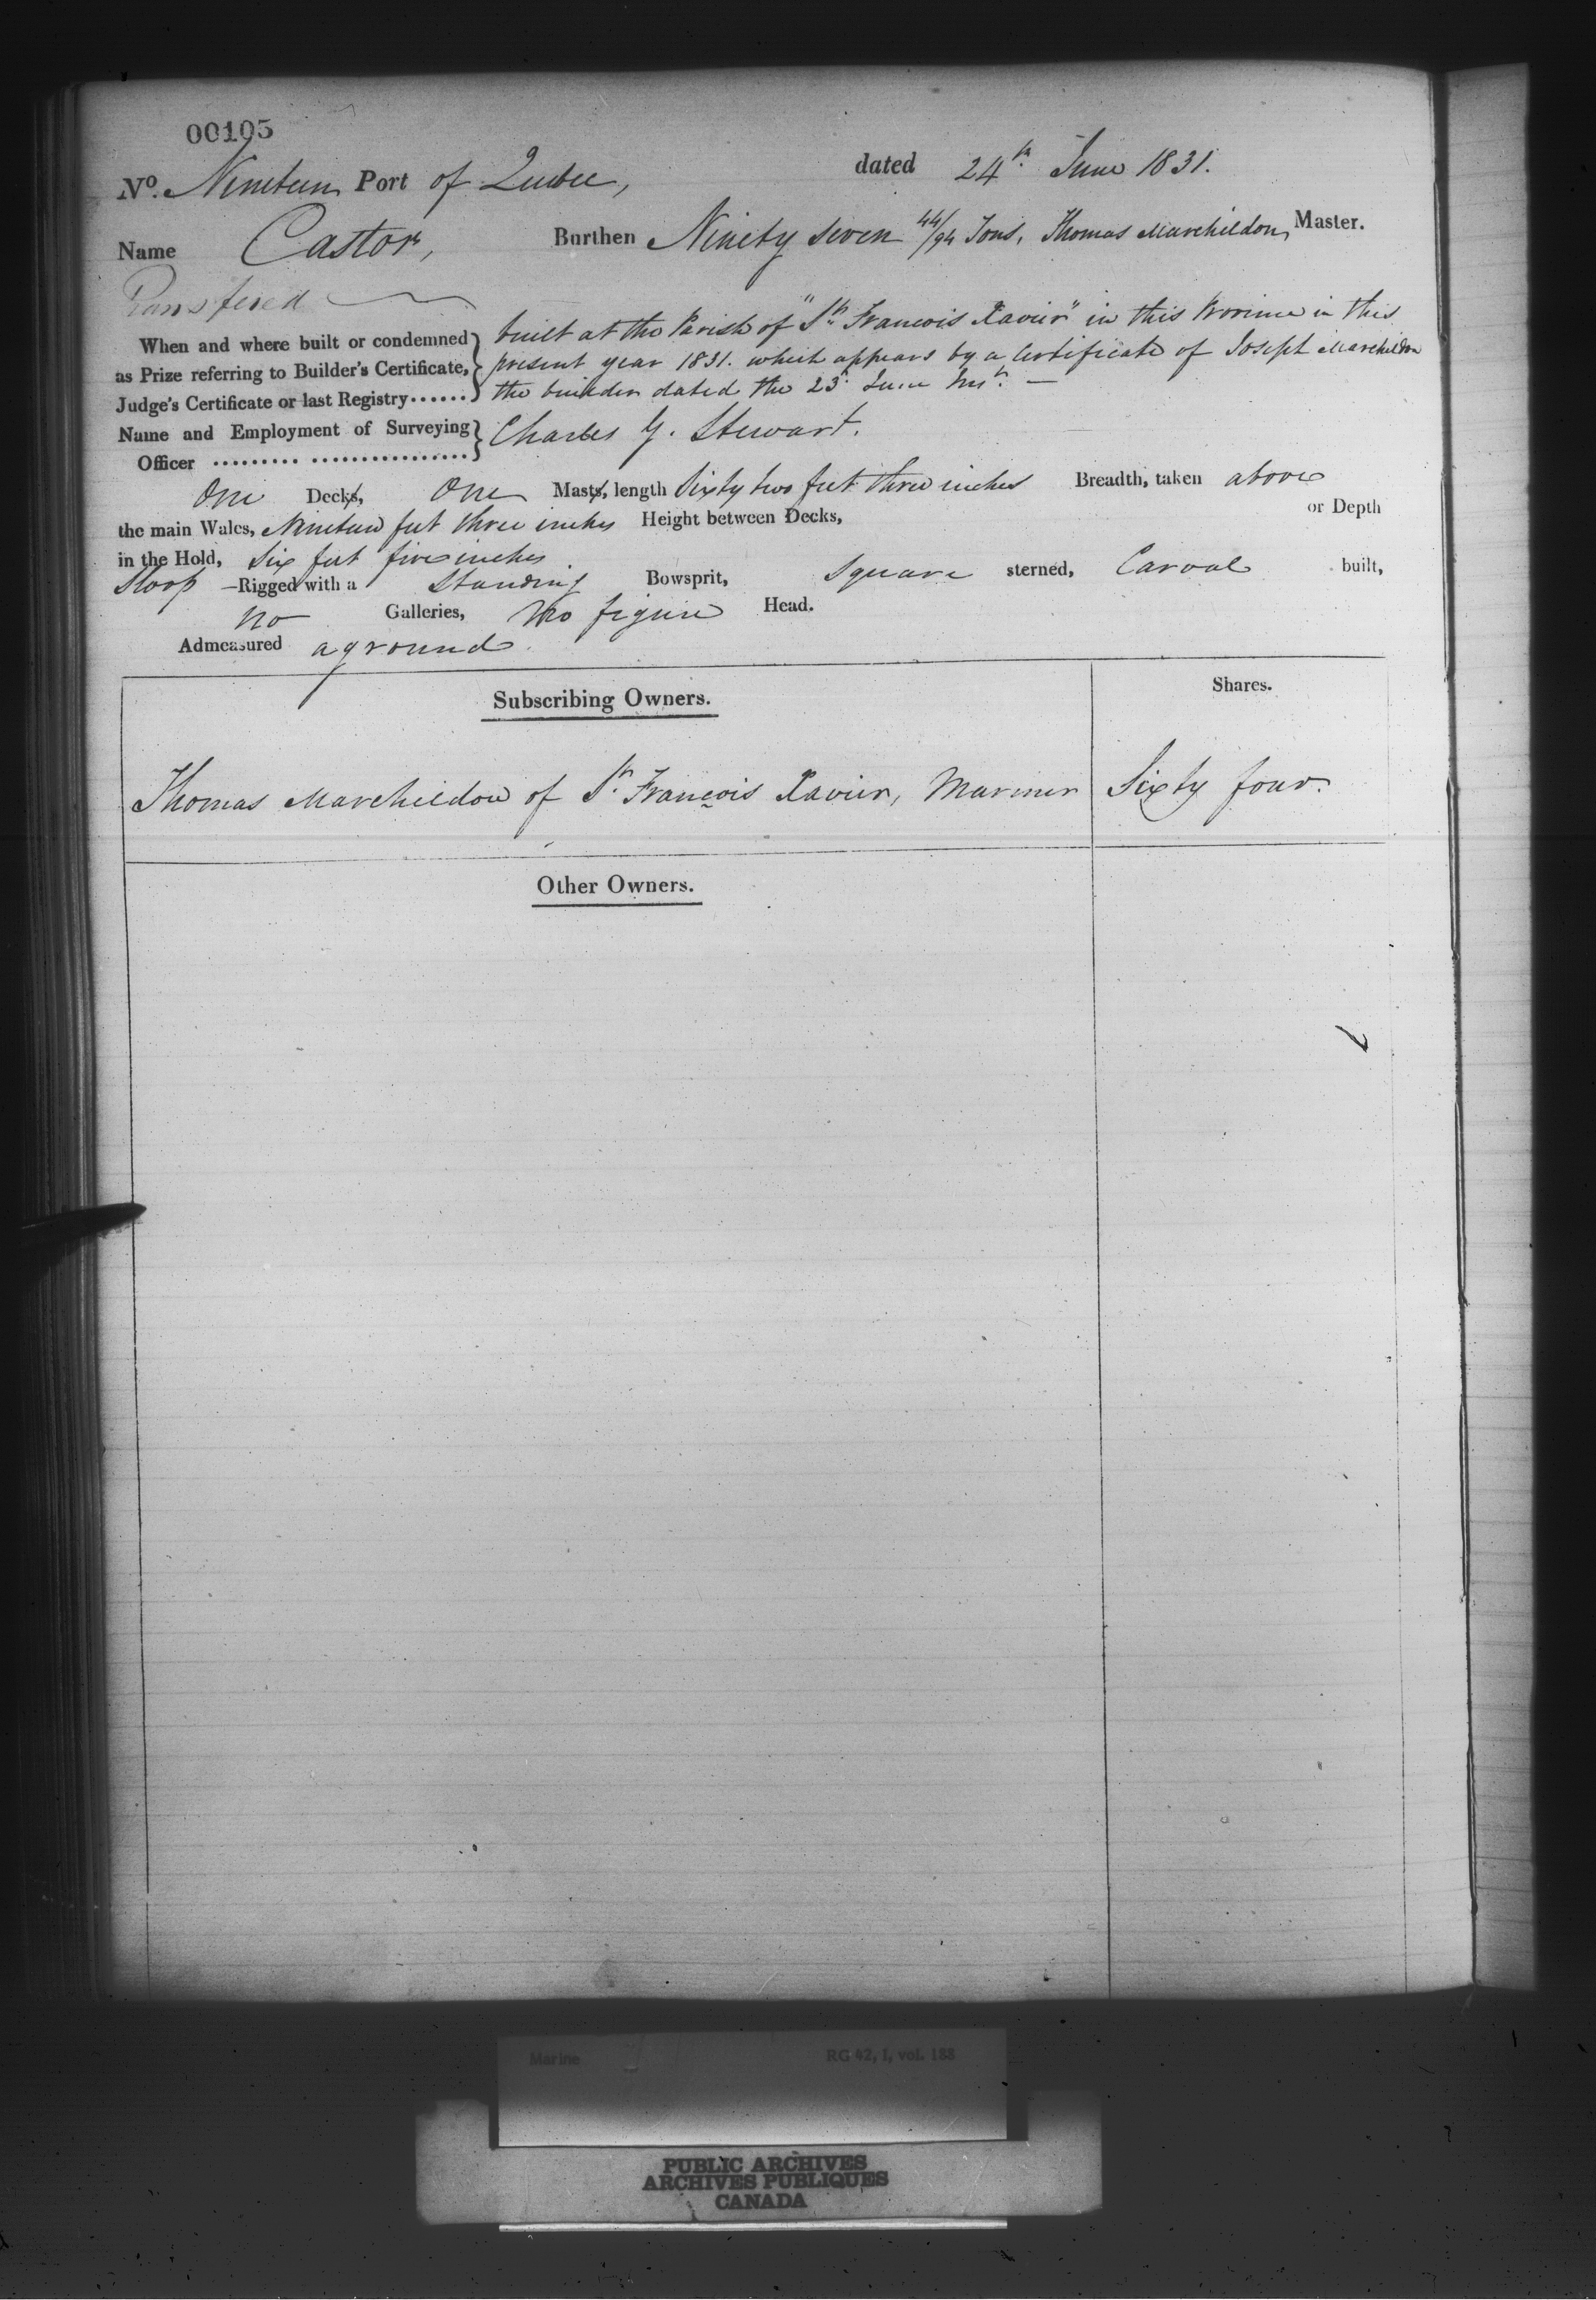 00105
No. Nineteen Port of Quebec, dated 24th June 1831.
Name Castor, Burthen Ninety seven 44/94 Tons, Thomas Marchildon, Master.
Transfered
When and where built or condemned as Prize referring to Builder's Certificate, Judge's Certificate or last Registry......
built at the Parish of "St. Francois Xavier" in this Province in this
present year 1831. which appears by a Certificate of Joseph Marchildon
the builder dated the 23d. June Inst. —
Name and Employment of Surveying Officer ......... ................ Charles G. Stewart.
One Decks, One Masts, length Sixty two feet three inches Breadth, taken above
the main Wales, Nineteen feet three inches Height between Decks, or Depth
in the Hold, Six feet five inches
Sloop —Rigged with a Standing Bowsprit, Square sterned, Carvel built,
no Galleries, no figure Head.
Admeasured aground.
Subscribing Owners. Shares.
Thomas Marchildon of St. François Xavier, Mariner Sixty four.
Other Owners.
Marine RG 42, I, vol. 183
PUBLIC ARCHIVES
ARCHIVES PUBLIQUES
CANADA